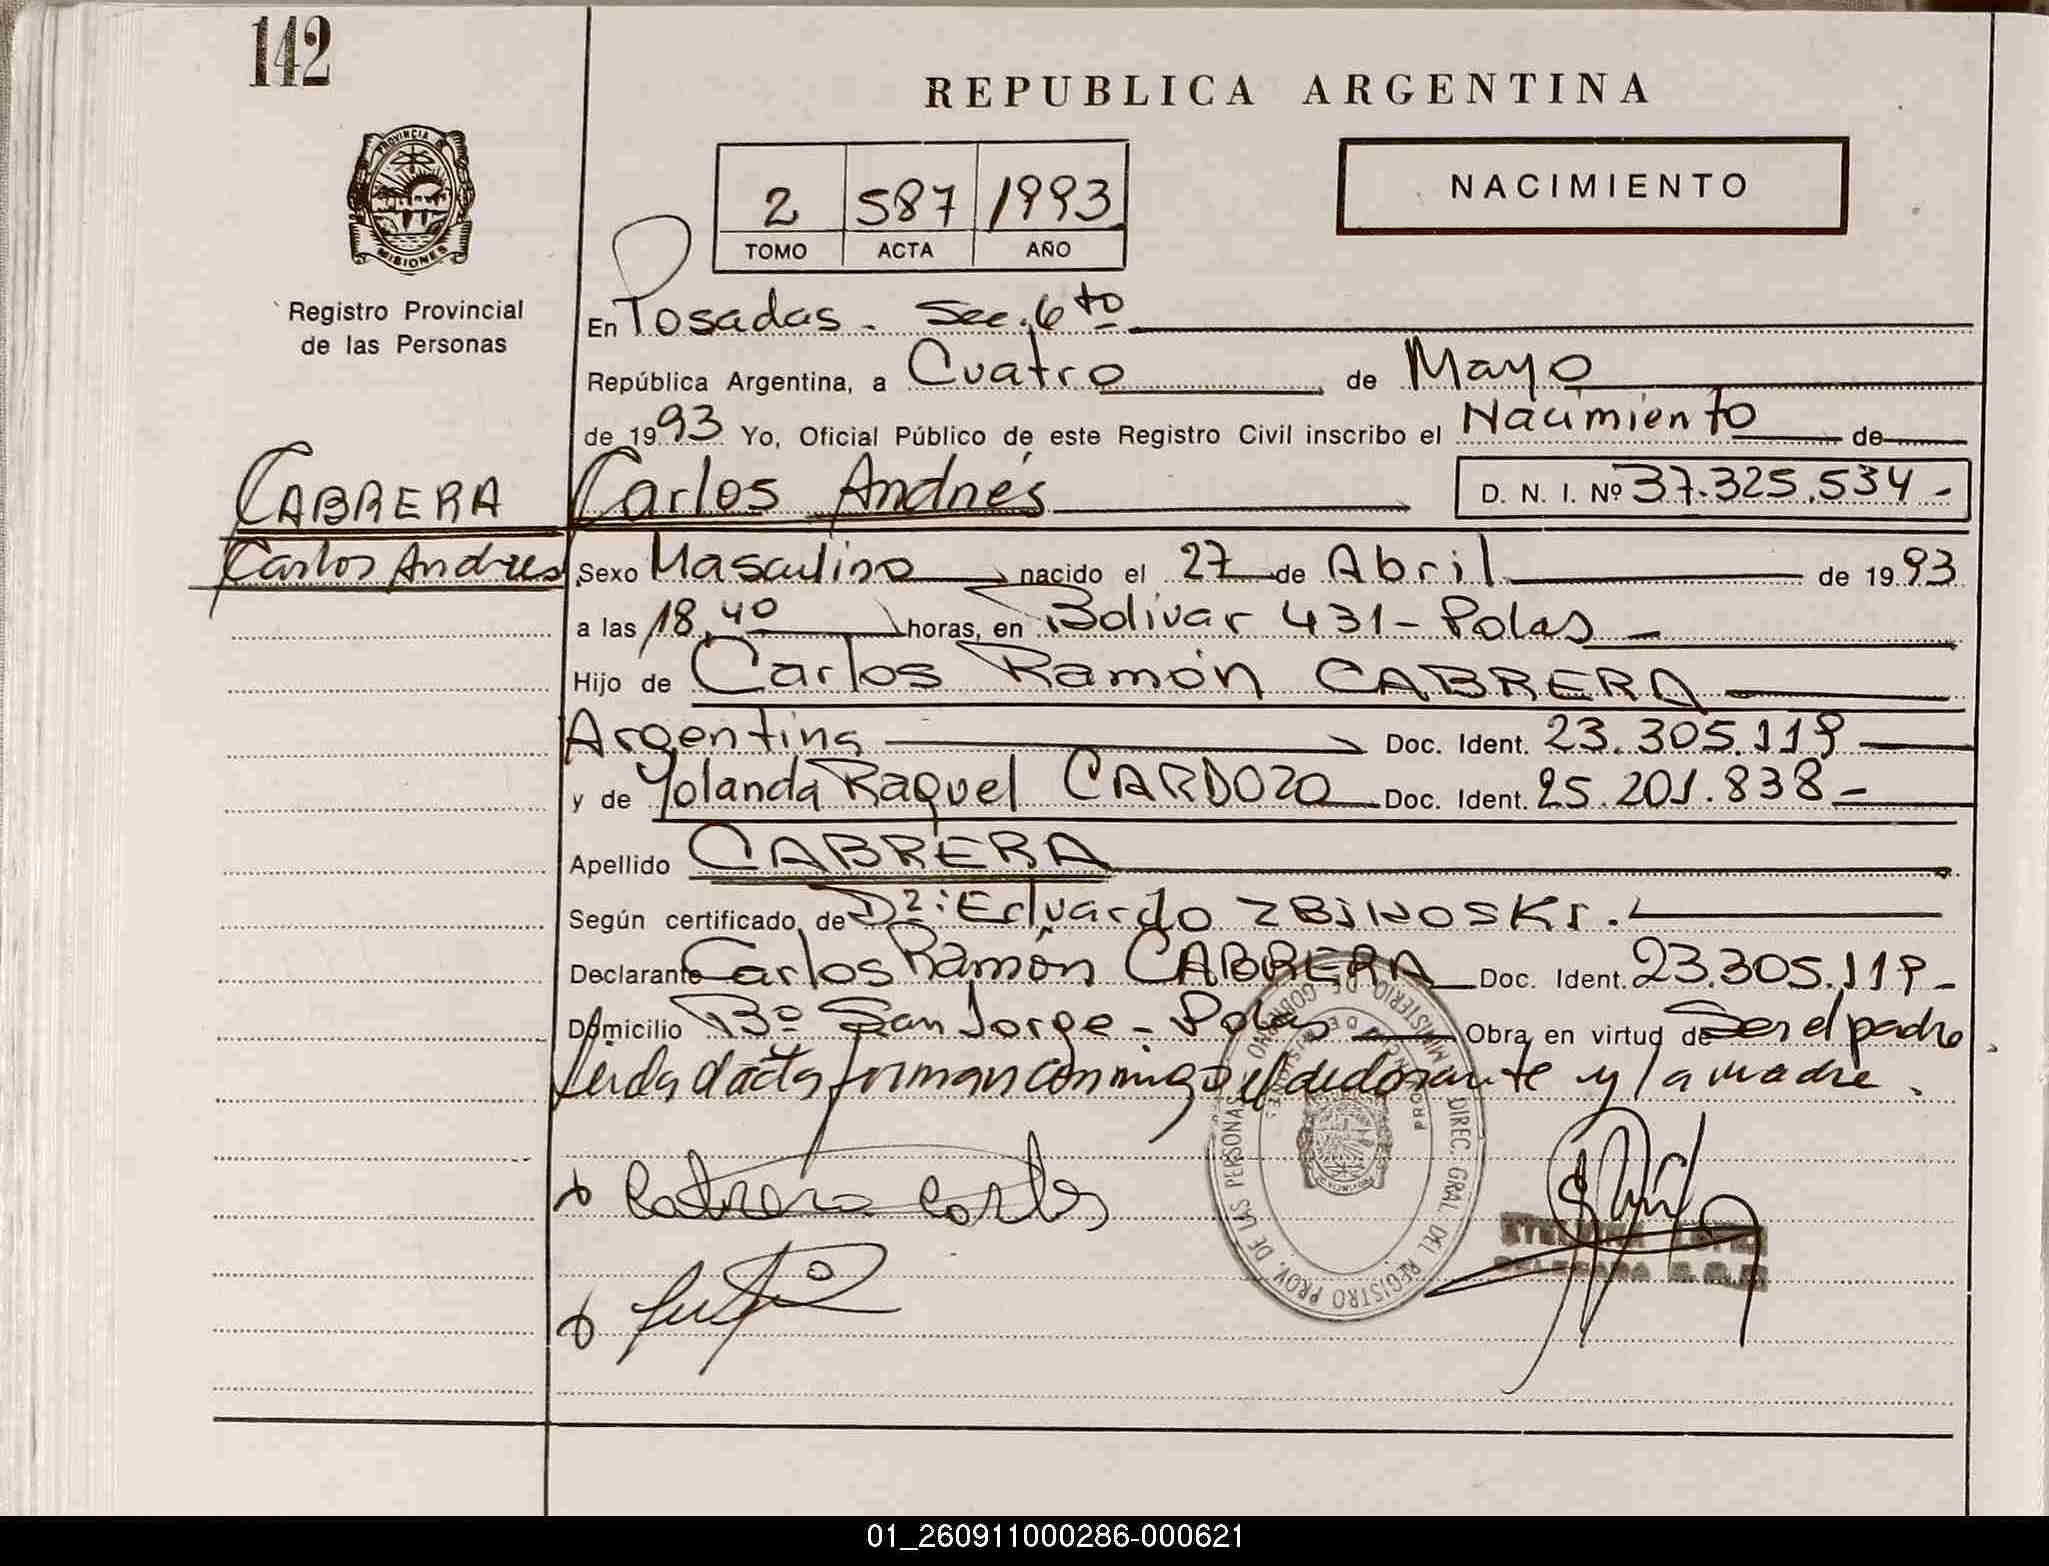 142
REPUBLICA ARGENTINA
PROVINCIA DE
MISIONES
Registro Provincial
de las Personas
2 587 1993
TOMO ACTA AÑO
NACIMIENTO
En Posadas. Sec. 6to
República Argentina, a Cuatro de Mayo
de 1993 Yo, Oficial Público de este Registro Civil inscribo el Nacimiento de
CABRERA
Carlos Andres
Carlos Andrés D. N. I. Nº 37.325.534-
Sexo Masculino nacido el 27 de Abril de 1993
a las 18,40 horas, en Bolívar 431 - Pdas -
Hijo de Carlos Ramón CABRERA
Argentina Doc. Ident. 23.305.119
y de Yolanda Raquel CARDOZO Doc. Ident. 25.201.838-
Apellido CABRERA
Según certificado de Dr: Eduardo ZBIHOSKI.
Declarante Carlos Ramón CABRERA Doc. Ident. 23.305.119-
Domicilio Bº San Jorge - Pdas Obra en virtud de Ser el padre
Leida el acta firman conmigo el declarante y la madre.
Cabrera Carlos
MINISTERIO DE GOBIERNO
DIREC. GRAL. DEL REGISTRO PROV. DE LAS PERSONAS
PROVINCIA DE MISIONES
01_260911000286-000621